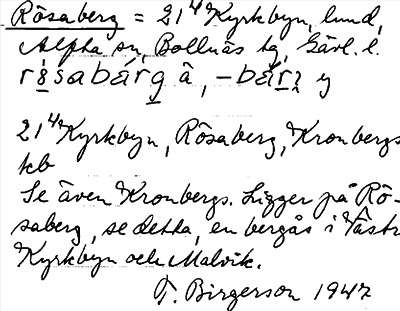 Rösaberg = 21⁴ Kyrkbyn, lund,
Alfta sn, Bollnäs tg, Gävl. l.
21⁴ Kyrkbyn, Rösaberg, Kronbergs
Se även Kronbergs. Ligger på Rö-
saberg, se detta, en bergås i Västra
Kyrkbyn och Malvik.
T. Birgerson 1947